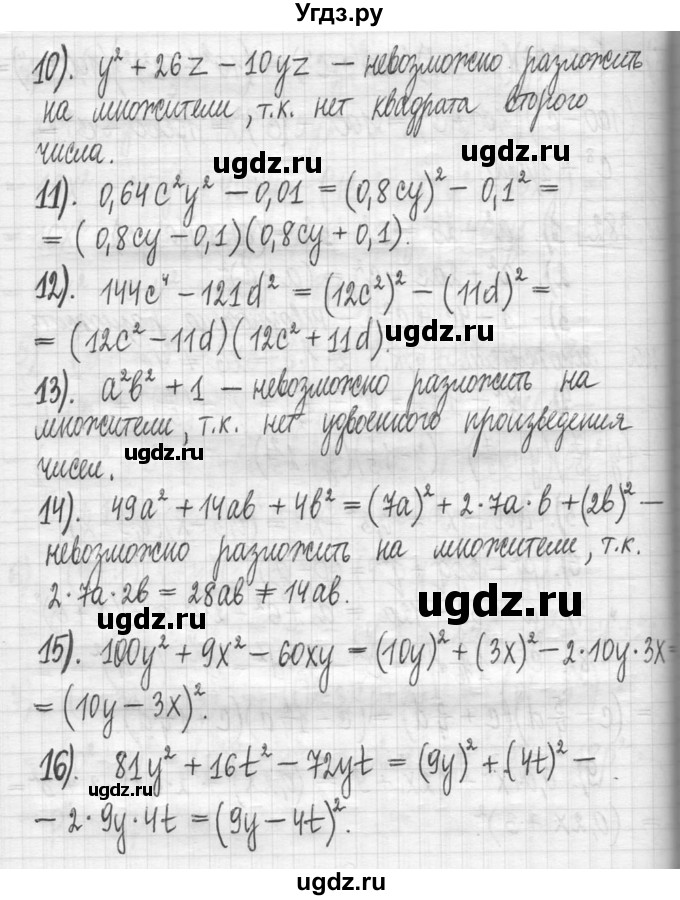 Угдз.ру
10). y² + 26z − 10yz — невозможно разложить
на множители, т.к. нет квадрата второго
числа.
ugdz.ru
ugdz.ru
11). 0,64c²y² − 0,01 = (0,8cy)² − 0,1² =
= (0,8cy − 0,1)(0,8cy + 0,1).
12). 144c⁴ − 121d² = (12c²)² − (11d)² =
= (12c² − 11d)(12c² + 11d).
ugdz.ru
13). a²b² + 1 — невозможно разложить на
множители, т.к. нет удвоенного произведения
чисел.
ugdz.ru
14). 49a² + 14ab + 4b² = (7a)² + 2·7a·b + (2b)² —
невозможно разложить на множители, т.к.
2·7a·2b = 28ab ≠ 14ab.
ugdz.ru
ugdz.ru
15). 100y² + 9x² − 60xy = (10y)² + (3x)² − 2·10y·3x =
= (10y − 3x)².
16). 81y² + 16t² − 72yt = (9y)² + (4t)² −
ugdz.ru
− 2·9y·4t = (9y − 4t)².
ugdz.ru
ugdz.ru